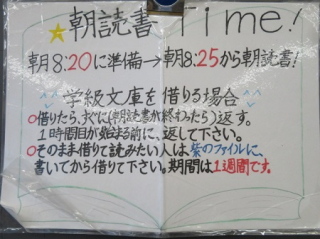 ★朝読書 Time!
朝8:20に準備→朝8:25から朝読書!
学級文庫を借りる場合
○借りたら、すぐに(朝読書が終わったら)返す。
1時間目が始まる前に、返して下さい。
○そのまま借りて読みたい人は、紫のファイルに、
書いてから借りて下さい。期間は1週間です。